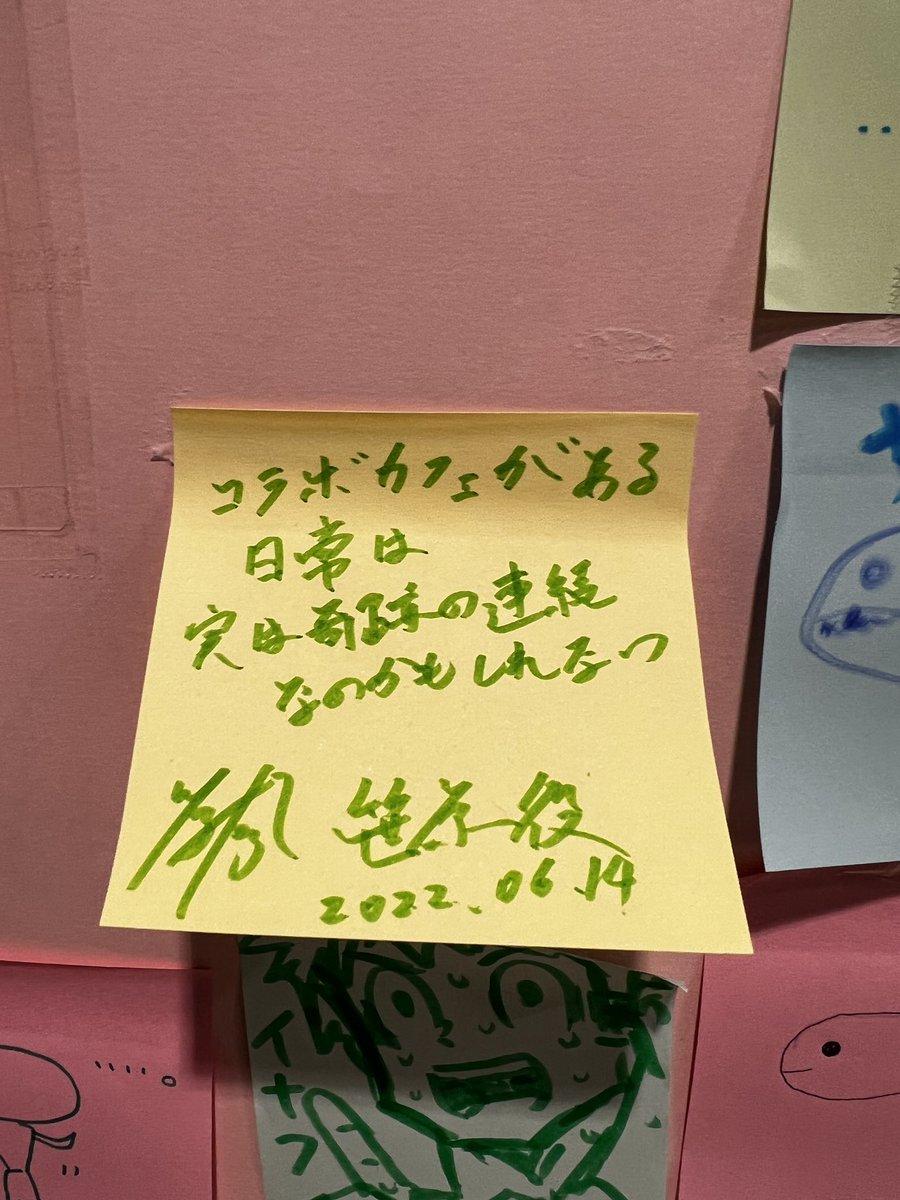 コラボカフェがある
日常は
実は奇跡の連続
なのかもしれない
笹原役
2022.06.14